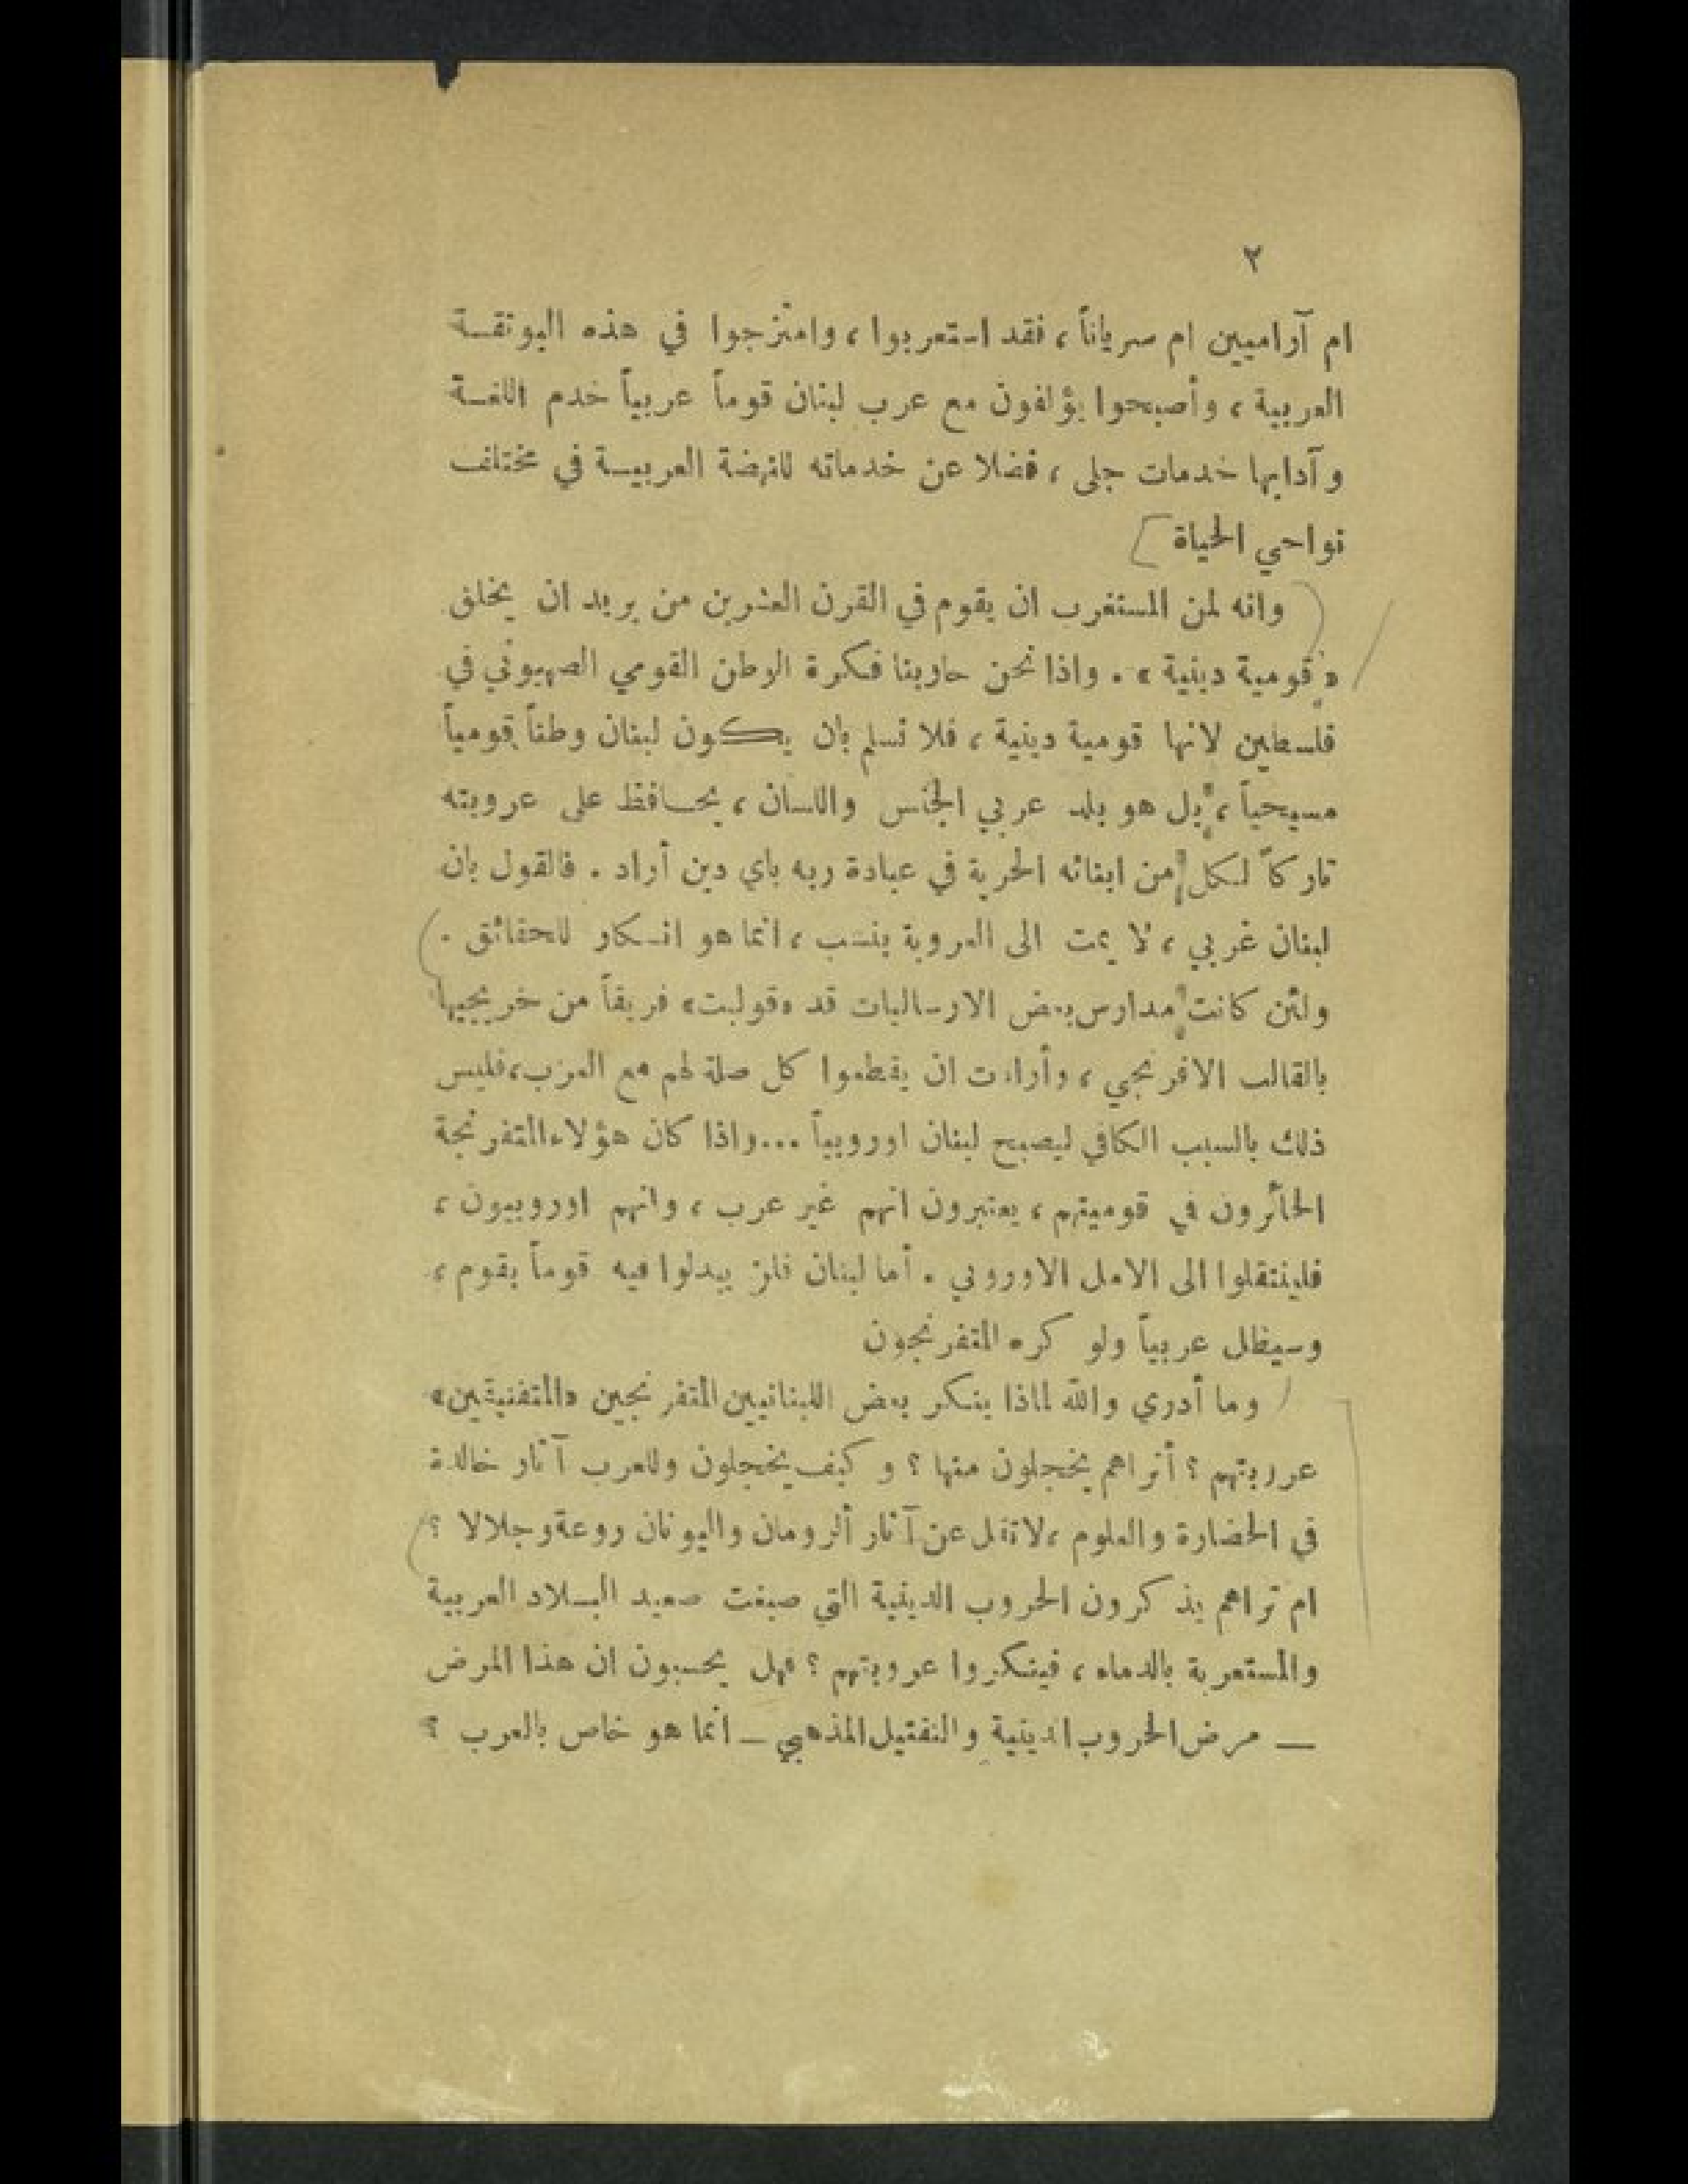 ٢
ام آراميين ام سرياناً ، فقد استعربوا ، وامتزجوا في هذه البوتقـة
العربية ، وأصبحوا يؤلفون مع عرب لبنان قوماً عربياً خدم اللغـة
وآدابها خدمات جلى ، فضلا عن خدماته للنهضة العربيـة في مختلف
نواحي الحياة ]
وانه لمن المستغرب ان يقوم في القرن العشرين من يريد ان يخلق
« قومية دينية » . واذا نحن حاربنا فكرة الوطن القومي الصهيوني في
فلسطين لانها قومية دينية ، فلا نسلم بان يكون لبنان وطناً قومياً
مسيحياً ، بل هو بلد عربي الجنس واللسان ، يحـافظ على عروبته
تاركاً لكل من ابنائه الحرية في عبادة ربه باي دين أراد . فالقول بان
لبنان غربي ، لا يمت الى العروبة بنسب ، انما هو انـكار للحقائق .
ولئن كانت مدارس بعض الارساليات قد «قولبت» فريقاً من خريجيها
بالقالب الافرنجي ، وأرادت ان يقطعوا كل صلة لهم مع العرب ، فليس
ذلك بالسبب الكافي ليصبح لبنان اوروبياً ... واذا كان هؤلاء المتفرنجة
الحائرون في قوميتهم ، يعتبرون انهم غير عرب ، وانهم اوروبيون ،
فلينتقلوا الى الاصل الاوروبي . أما لبنان فلن يبدلوا فيه قوماً بقوم ،
وسيظل عربياً ولو كره المتفرنجون
وما أدري والله لماذا ينكر بعض اللبنانيين المتفرنجين «المتفنيقين»
عروبتهم ؟ أتراهم يخجلون منها ؟ وكيف يخجلون وللعرب آثار خالدة
في الحضارة والعلوم ، لا تقل عن آثار الرومان واليونان روعة وجلالا ؟
ام تراهم يذكرون الحروب الدينية التي صبغت صعيد البـلاد العربية
والمستعربة بالدماء ، فينكروا عروبتهم ؟ فهل يحسبون ان هذا المرض
— مرض الحروب الدينية والتقتيل المذهبي — انما هو خاص بالعرب ؟